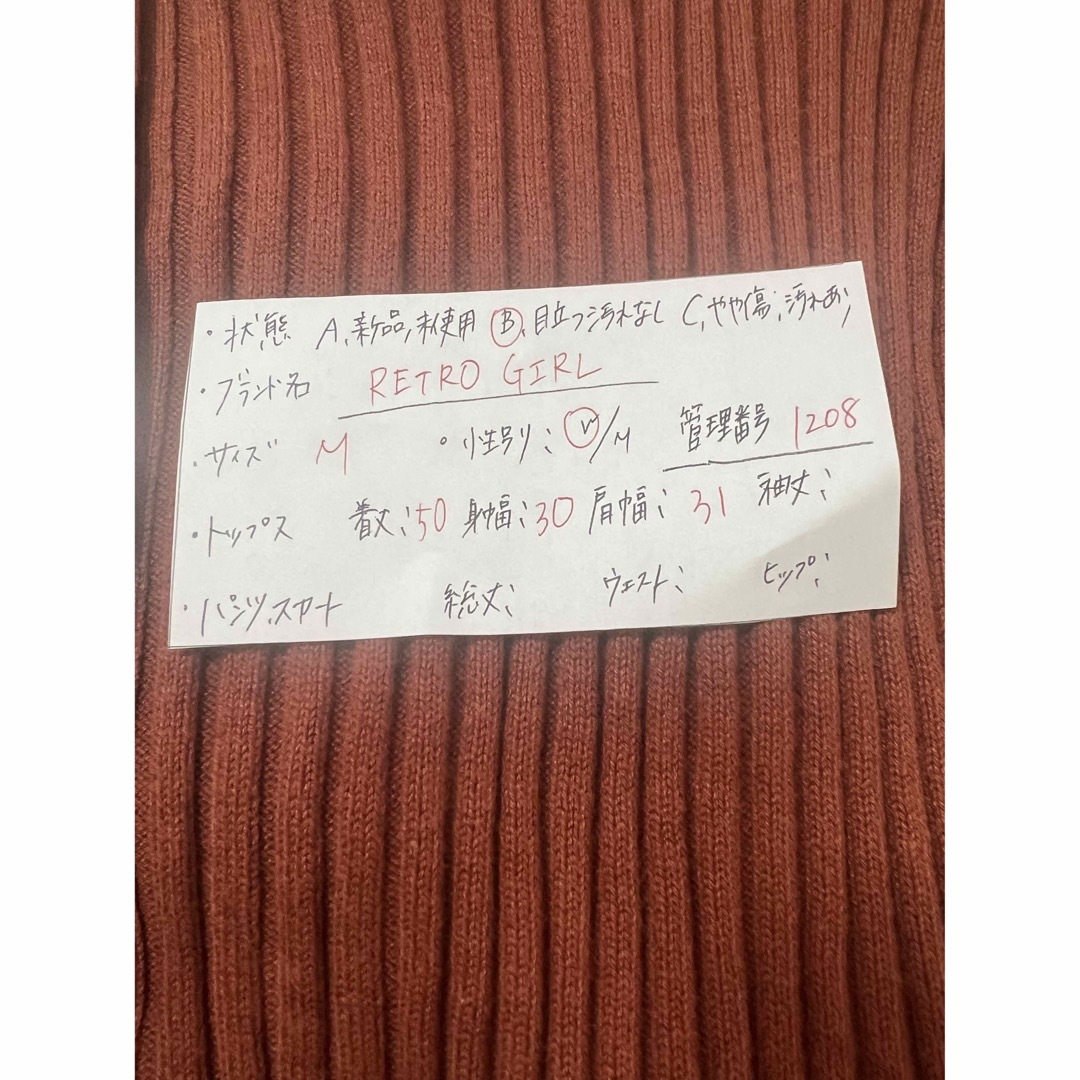 ・状態 A,新品,未使用 B,目立つ汚れなし C,やや傷,汚れあり
・ブランド名 RETRO GIRL
・サイズ M ・性別: W/M 管理番号 1208
・トップス 着丈:50 身幅:30 肩幅:31 袖丈:
・パンツ,スカート 総丈: ウエスト: ヒップ: